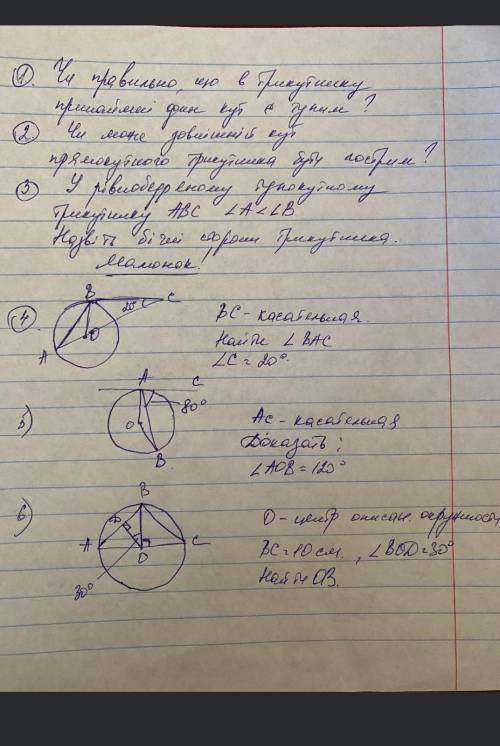 1. Чи правильно, що в трикутнику
принаймні один кут є тупим?
2. Чи може зовнішній кут
прямокутного трикутника бути гострим?
3 У рівнобедреному тупокутному
трикутнику ABC ∠A<∠B
Назвіть бічні сторони трикутника.
Малюнок.
4
B
C
20°
O
A
BC - касательная.
Найти ∠BAC
∠C = 20°
5)
A
C
80°
O
B
AC - касательная
Доказать:
∠AOB = 120°
6)
B
D
A
C
O
30°
O - центр описан. окружност
BC = 10 см. , ∠BOD = 30°
Найти OB.